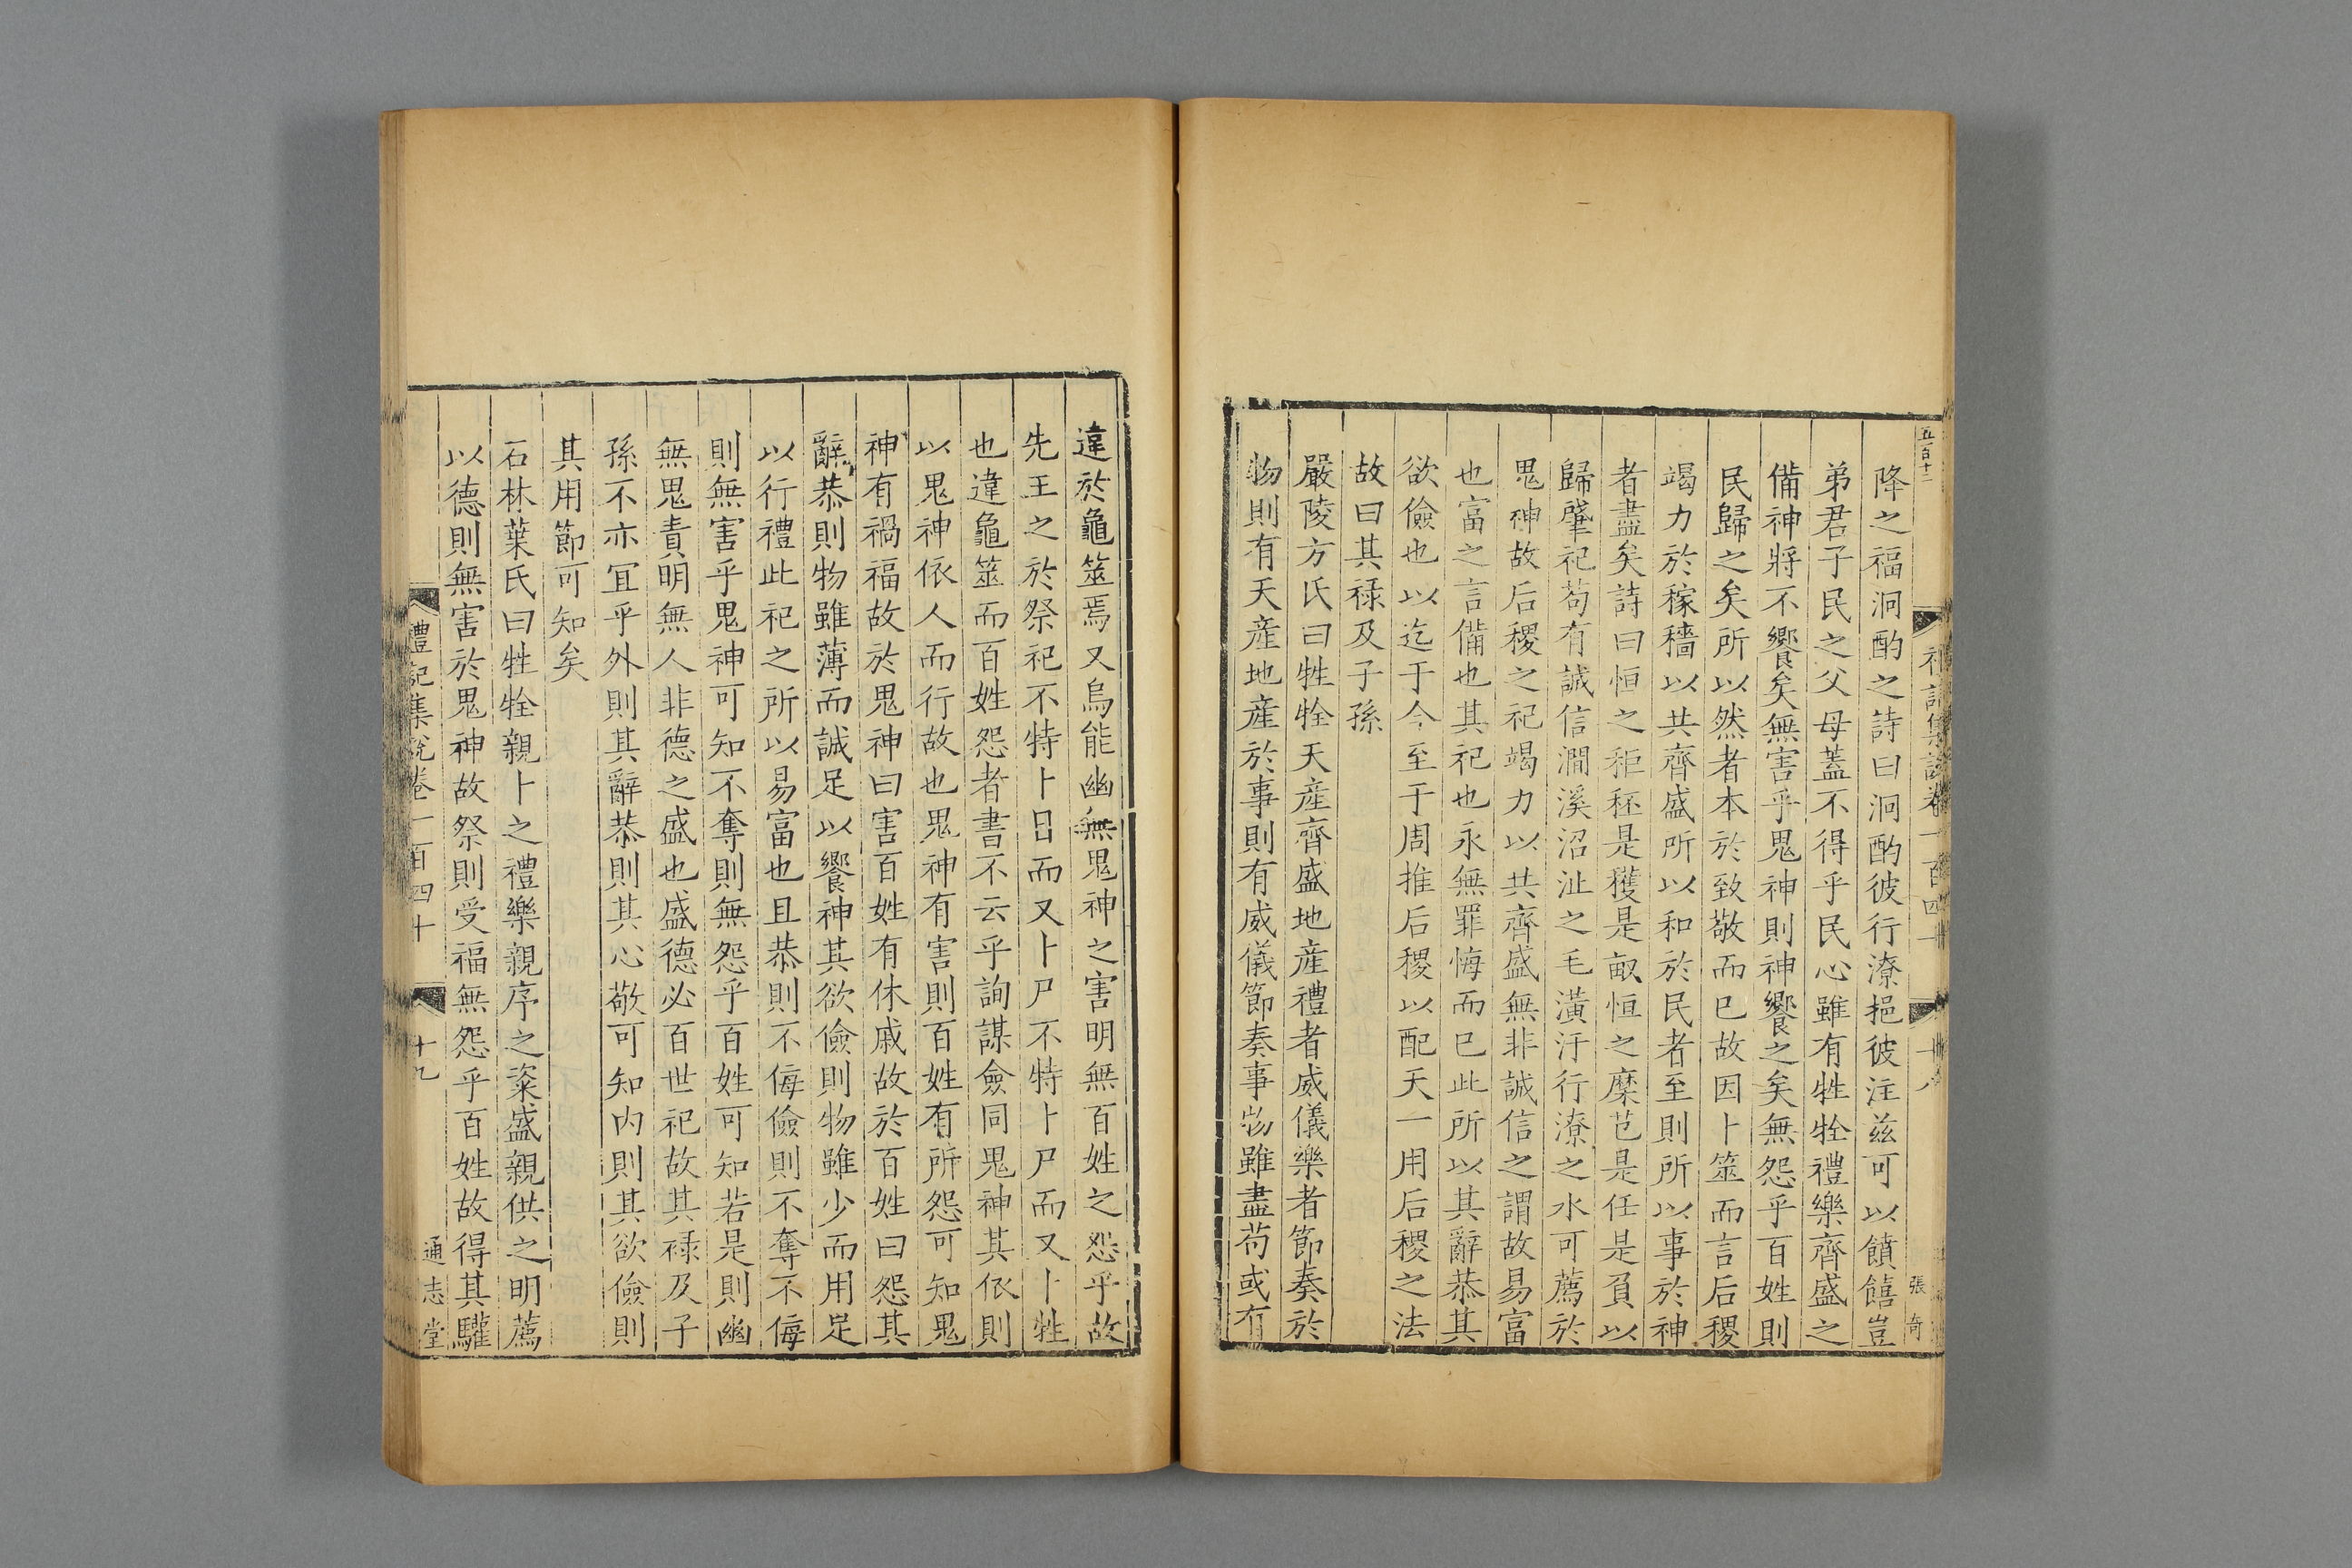 五百十二
禮記集說卷一百四十
十八
張奇
降之福泂酌之詩曰泂酌彼行潦挹彼注兹可以饙饎豈
弟君子民之父母蓋不得乎民心雖有牲牷禮樂齊盛之
備神將不饗矣無害乎鬼神則神饗之矣無怨乎百姓則
民歸之矣所以然者本於致敬而已故因卜筮而言后稷
竭力於稼穡以共齊盛所以和於民者至則所以事於神
者盡矣詩曰恒之秬秠是穫是畝恒之穈芑是任是負以
歸肇祀苟有誠信澗溪沼沚之毛潢汙行潦之水可薦於
鬼神故后稷之祀竭力以共齊盛無非誠信之謂故易富
也富之言備也其祀也永無罪悔而已此所以其辭恭其
欲儉也以迄于今至于周推后稷以配天一用后稷之法
故曰其祿及子孫
嚴陵方氏曰牲牷天産齊盛地産禮者威儀樂者節奏於
物則有天産地産於事則有威儀節奏事物雖盡苟或有
違於龜筮焉又烏能幽無鬼神之害明無百姓之怨乎故
先王之於祭祀不特卜日而又卜尸不特卜尸而又卜牲
也違龜筮而百姓怨者書不云乎詢謀僉同鬼神其依則
以鬼神依人而行故也鬼神有害則百姓有所怨可知鬼
神有禍福故於鬼神曰害百姓有休戚故於百姓曰怨其
辭恭則物雖薄而誠足以饗神其欲儉則物雖少而用足
以行禮此祀之所以易富也且恭則不侮儉則不奪不侮
則無害乎鬼神可知不奪則無怨乎百姓可知若是則幽
無鬼責明無人非德之盛也盛德必百世祀故其祿及子
孫不亦冝乎外則其辭恭則其心敬可知内則其欲儉則
其用節可知矣
石林葉氏曰牲牷親卜之禮樂親序之粢盛親供之明薦
以德則無害於鬼神故祭則受福無怨乎百姓故得其驩
禮記集說卷一百四十
十九
通志堂